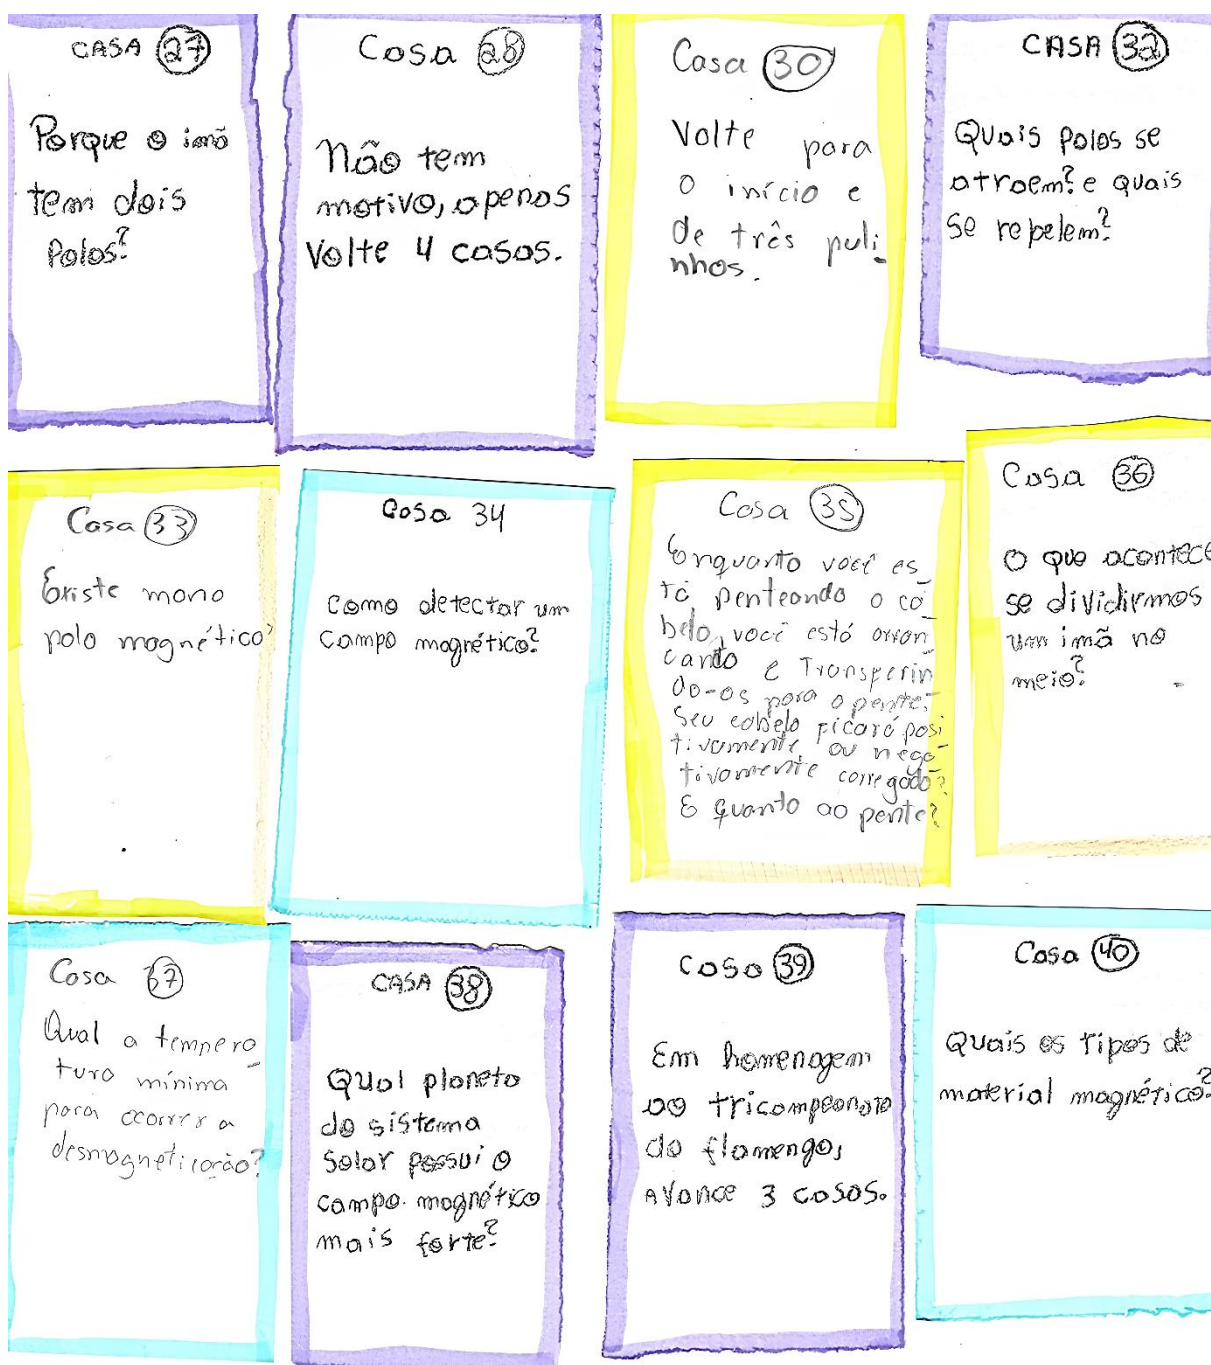 CASA 27
Porque o imã
tem dois
Polos?
Casa 28
Não tem
motivo, apenas
Volte 4 casas.
Casa 30
Volte para
o início e
de três puli-
nhos.
CASA 32
Quais polos se
atraem? e quais
se repelem?
Casa 33
Existe mono
polo magnético?
Casa 34
Como detectar um
campo magnético?
Casa 35
Enquanto você es-
tá penteando o ca-
belo, você está arran
cando e Transferin
do-os para o pente.
Seu cabelo ficará posi
tivamente ou nega-
tivamente carregado?
E quanto ao pente?
Casa 36
O que acontece
se dividirmos
um imã no
meio?
Casa 37
Qual a tempera-
tura mínima
para ocorrer a
desmagnetização?
CASA 38
Qual planeta
do sistema
Solar possui o
campo magnético
mais forte?
Casa 39
Em homenagem
ao tricampeonato
do flamengo,
Avance 3 casas.
Casa 40
Quais os tipos de
material magnético?